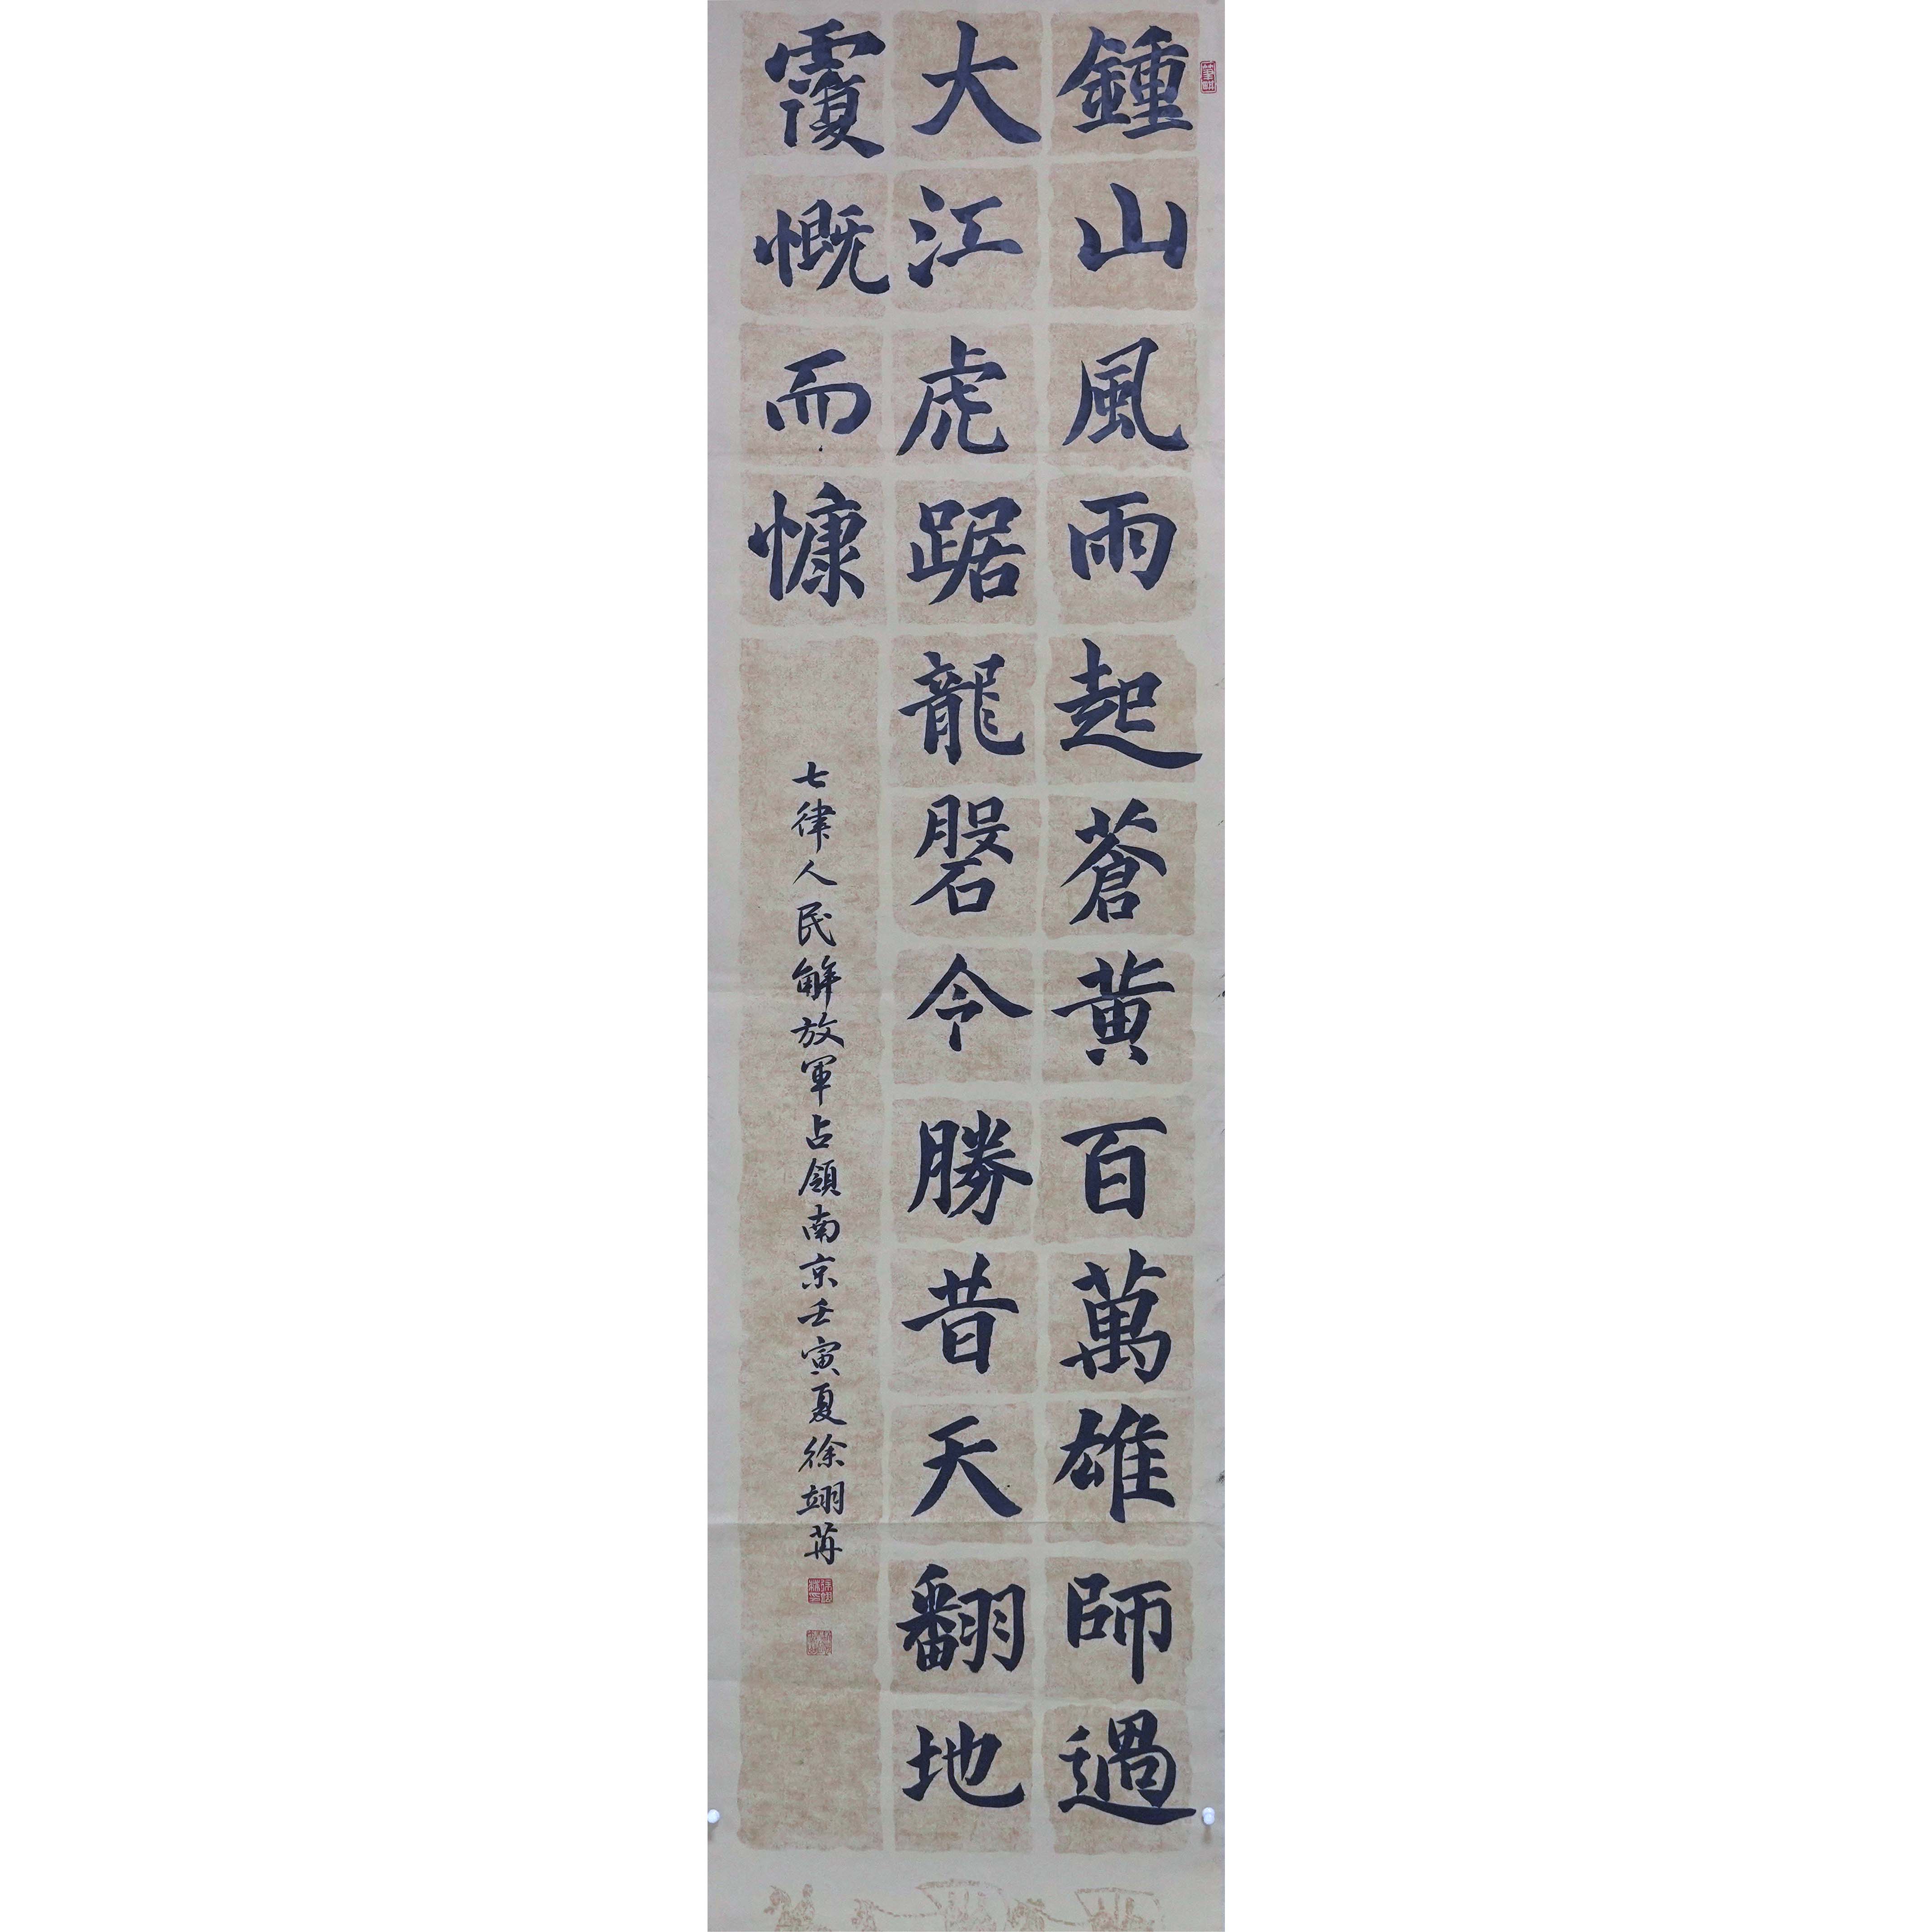 鍾山風雨起蒼黄百萬雄師過
大江虎踞龍磐今勝昔天翻地
覆慨而慷
七律人民解放軍占領南京壬寅夏徐翊苒